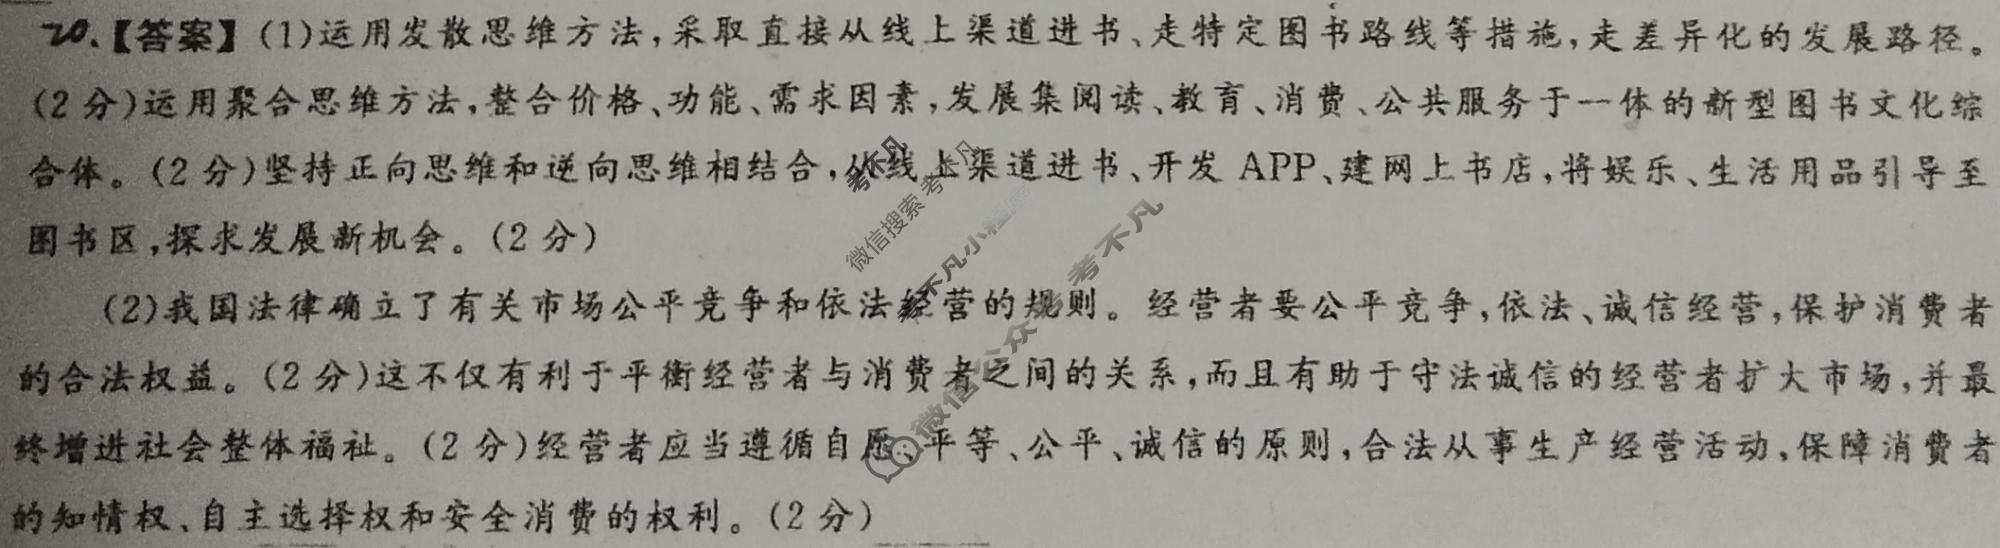 20.【答案】(1)运用发散思维方法,采取直接从线上渠道进书、走特定图书路线等措施,走差异化的发展路径。
(2分)运用聚合思维方法,整合价格、功能、需求因素,发展集阅读、教育、消费、公共服务于一体的新型图书文化综
合体。(2分)坚持正向思维和逆向思维相结合,从线上渠道进书、开发APP、建网上书店,将娱乐、生活用品引导至
图书区,探求发展新机会。(2分)
(2)我国法律确立了有关市场公平竞争和依法经营的规则。经营者要公平竞争,依法、诚信经营,保护消费者
的合法权益。(2分)这不仅有利于平衡经营者与消费者之间的关系,而且有助于守法诚信的经营者扩大市场,并最
终增进社会整体福祉。(2分)经营者应当遵循自愿、平等、公平、诚信的原则,合法从事生产经营活动,保障消费者
的知情权、自主选择权和安全消费的权利。(2分)
考不凡
微信搜索考不凡
不凡小程
微信公众 考不凡